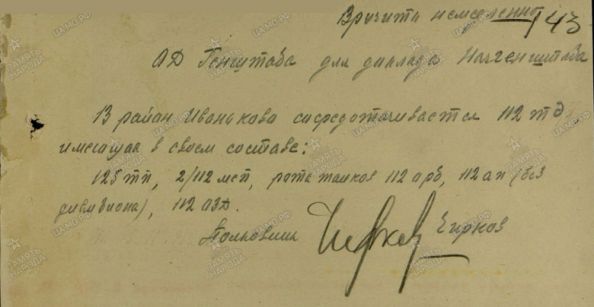 Вручить немедленно 143
ОД Генштаба для доклада Начгенштаба
В район Иванькова сосредотачивается 112 тд,
имеющая в своем составе:
125 тп, 2/112 мсп, рота танков 112 орб, 112 ап (без
дивизиона), 112 ОЗД.
Полковник Чирков